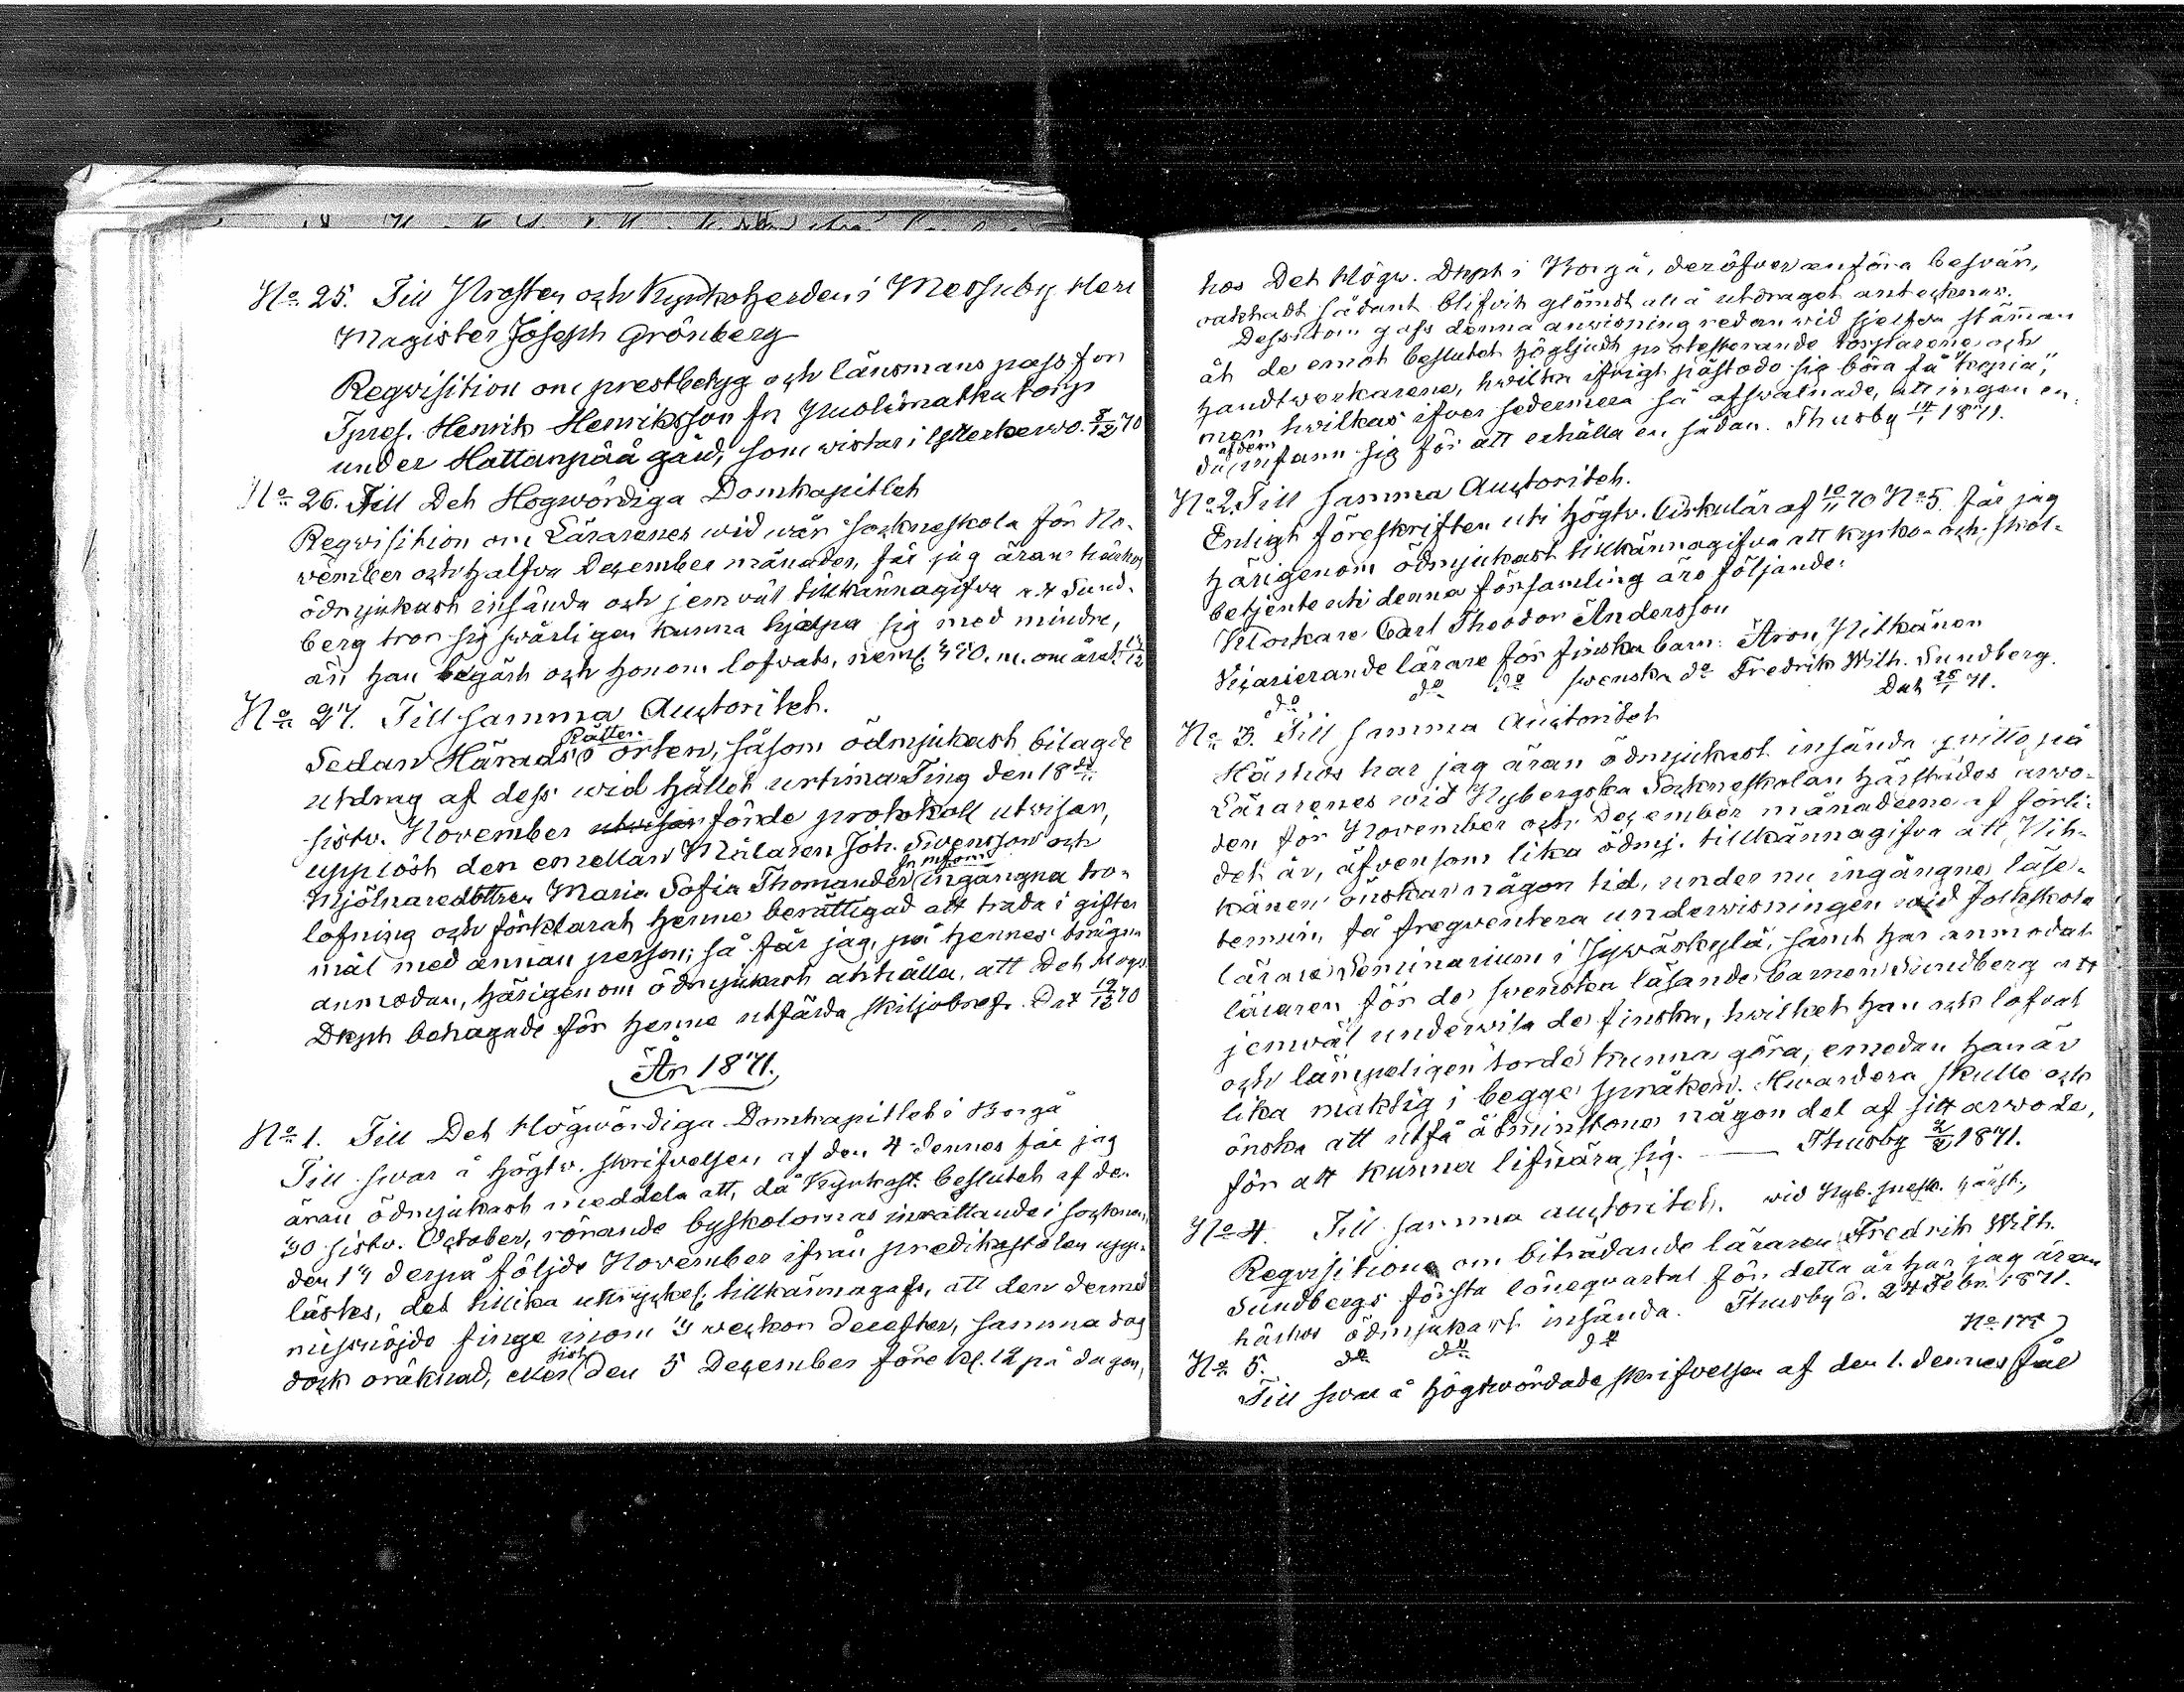 No 25. Till Prosten och Kyrkoherden i Messuby Herr
Magister Joseph Grönberg
Reqvisition om prestbetyg och länsmans pass för
Tprof. Henrik Henriksson fr torp
under Hattanpää gård, som vistas i Ytterkervo. 8/12 70
No 26. Till Det Högwördiga Domkapitlet
Reqvisition om Lärarenes wid wår sockneskola för No-
vember och halfva December månader, får jag äran härhos
ödmjukast insända och jemväl tillkännagifva att Sund-
berg tror sig swårligen kunna hjelpa sig med mindre,
än han begärt och honom lofvats, neml. m. om året.
No 27. Till samma Auctoritet.
Sedan Härads Rätten i orten, såsom ödmjukast bilagde
utdrag af dess wid hållet urtima Ting den 18de
sistv. November förde protokoll utvisar,
upplöst den emellan Målaren Joh. Swensson och
Mjölnaredottren Maria Sofia Thomander ingångna tro-
lofning och förklarat henne berättigad att träda i gifter
mål med annan person; så får jag, på hennes trägna
anmodan, härigenom ödmjukast anhålla, att Det Högv.
Dkpt behagade för henne utfärda skiljobref. Dat 19/12 70
År 1871.
No 1. Till Det Högwördiga Domkapitlet i Borgå
Till swar å högtv. skrifvelsen af den 4 dennes får jag
äran ödmjukast meddela att, då Kyrkost. beslutet af den
30 sistv. October, rörande byskolornas inrättande i socknen,
den 13 derpå följde November ifrån predikstolen upp-
lästes, det tillika uttryckel. tillkännagafs, att den dermed
missnöjde finge inom 3 weckor derefter, samma dag
dock oräknad, eller sist den 5 December före kl. 12 på dagen,
hos Det Högw. Dkpt i Borgå, deröfver anföra beswär,
oaktadt sådant blifvit glömdt att å utdraget anteckna.
Dessutom gafs denna anwisning redan wid sjelfva stämman
åt de emot beslutet högljudt protesterande torparene och
handtwerkarene, hwilka ifrigt påstodo sig böra få "kopia",
men hwilkas ifver sedermera så afswalnade, att ingen en-
da af dem infann sig för att erhålla en sådan. Thusby 14/1 1871.
No 2. Till samma Auctoritet.
Enligt föreskriften uti högtv. Cirkulär af 10/11 70 No 5. får jag
härigenom ödmjukast tillkännagifva att kyrko- och skol-
betjente uti denna församling äro följande:
Klockare Carl Theodor Andersson
Vicarierande lärare för finska barn: Aron Nilkänen
do do do swenska do Fredrik Wilh. Sundberg.
Dat 25/1 71.
No 3. Till samma Auctoritet
Härhos har jag äran ödmjukast insända qvitto på
Lärarenes wid Nybergska Sockneskolan härstädes arvo-
den för November och December månaderne af förli-
det år, äfvensom lika ödmj. tillkännagifva att Nil-
känen önskar någon tid, under nu ingångna läse-
termin, få freqventera underwisningen wid folkskole
lärare Seminarium i Jywäskylä, samt har anmodat
läraren för de swenska läsande barnen Sundberg att
jemväl underwisa de finska, hwilket han ock lofvat
och lämpeligen torde kunna göra, emedan han är
lika mäktig i begge språken. Hwardera skulle ock
önska att utfå åtminstone någon del af sitt arwode,
för att kunna lifnära sig. — Thusby 1871.
No 4. Till samma auctoritet. wid Nyb. härst.,
Reqvisition om biträdande läraren Fredrik Wilh.
Sundbergs första löneqvartal för detta år har jag äran
härhos ödmjukast insända. Thusby d. 24 Febr. 1871.
No 5. do do do
Till swar å högtwördade skrifvelsen af den 1. dennes får